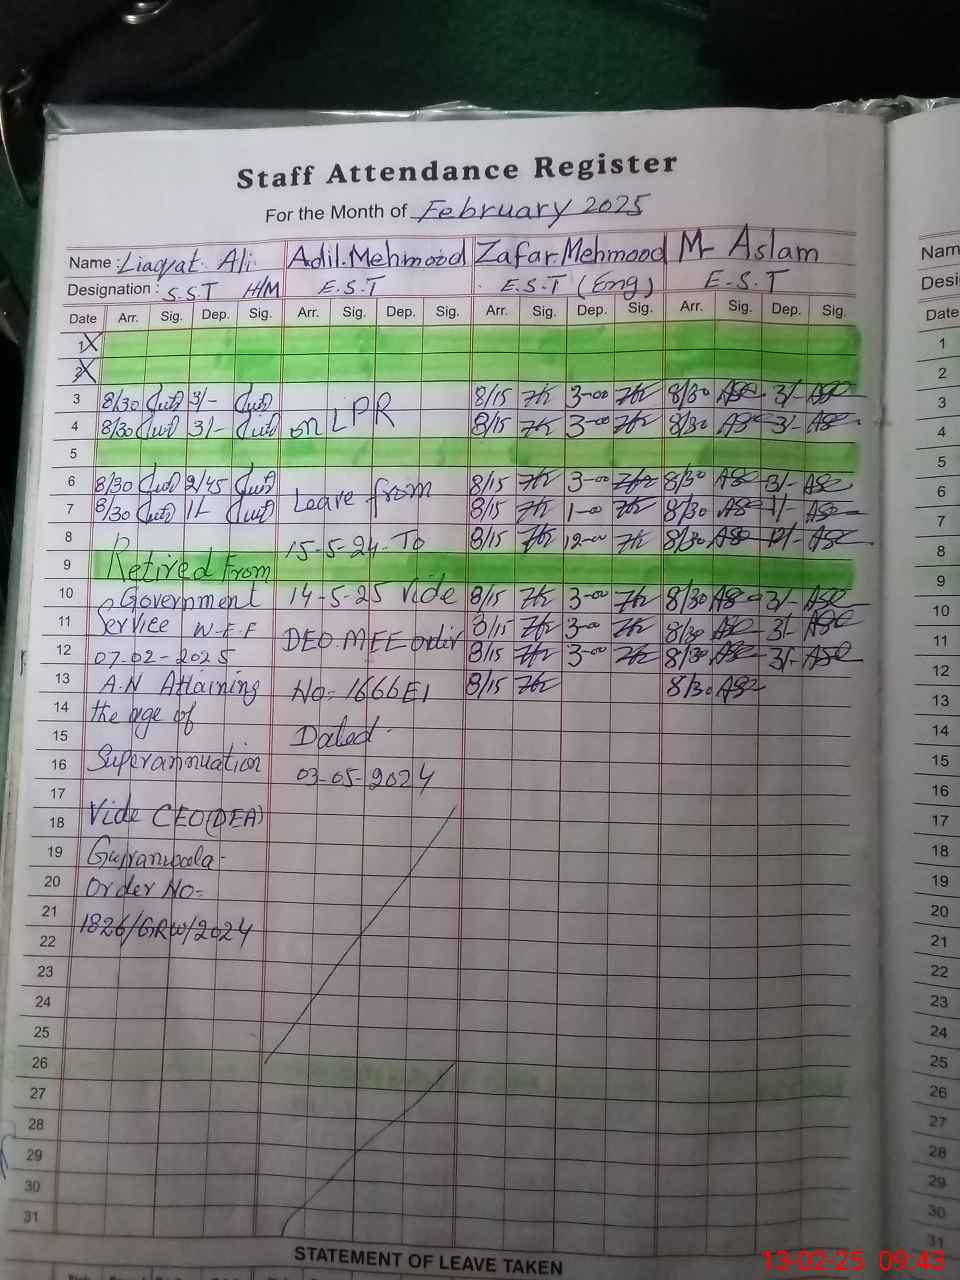 Staff Attendance Register
For the Month of February 2025
Name : Liaqat Ali Adil Mehmood Zafar Mehmood M Aslam
Designation : S.S.T H/M E.S.T E.S.T (Eng) E.S.T
Date Arr. Sig. Dep. Sig. Arr. Sig. Dep. Sig. Arr. Sig. Dep. Sig. Arr. Sig. Dep. Sig.
1 X
2 X
3 8/30 3/- 8/15 3-00 8/30 3/-
4 8/30 3/- on LPR 8/15 3-00 8/30 3/-
5
6 8/30 2/45 8/15 3-00 8/30 3/-
7 8/30 1/- Leave from 8/15 1-00 8/30 1/-
8 15-5-24 To 8/15 12-00 8/30 12/-
9 Retired From
10 Government 14-5-25 vide 8/15 3-00 8/30 3/-
11 Service W-E-F 8/15 3-00 8/30 3/-
12 07-02-2025 DEO MEE order 8/15 3-00 8/30 3/-
13 A.N Attaining No- 1666E1 8/15 8/30
14 the age of
15 Dated
16 Superannuation 03-05-2024
17
18 Vide CEO(DEA)
19 Gujranwala-
20 Order No-
21 1826/GRW/2024
22
23
24
25
26
27
28
29
30
31
STATEMENT OF LEAVE TAKEN
Nam
Desi
Date
1
2
3
4
5
6
7
8
9
10
11
12
13
14
15
16
17
18
19
20
21
22
23
24
25
26
27
28
29
30
31
13-02-25 09:43